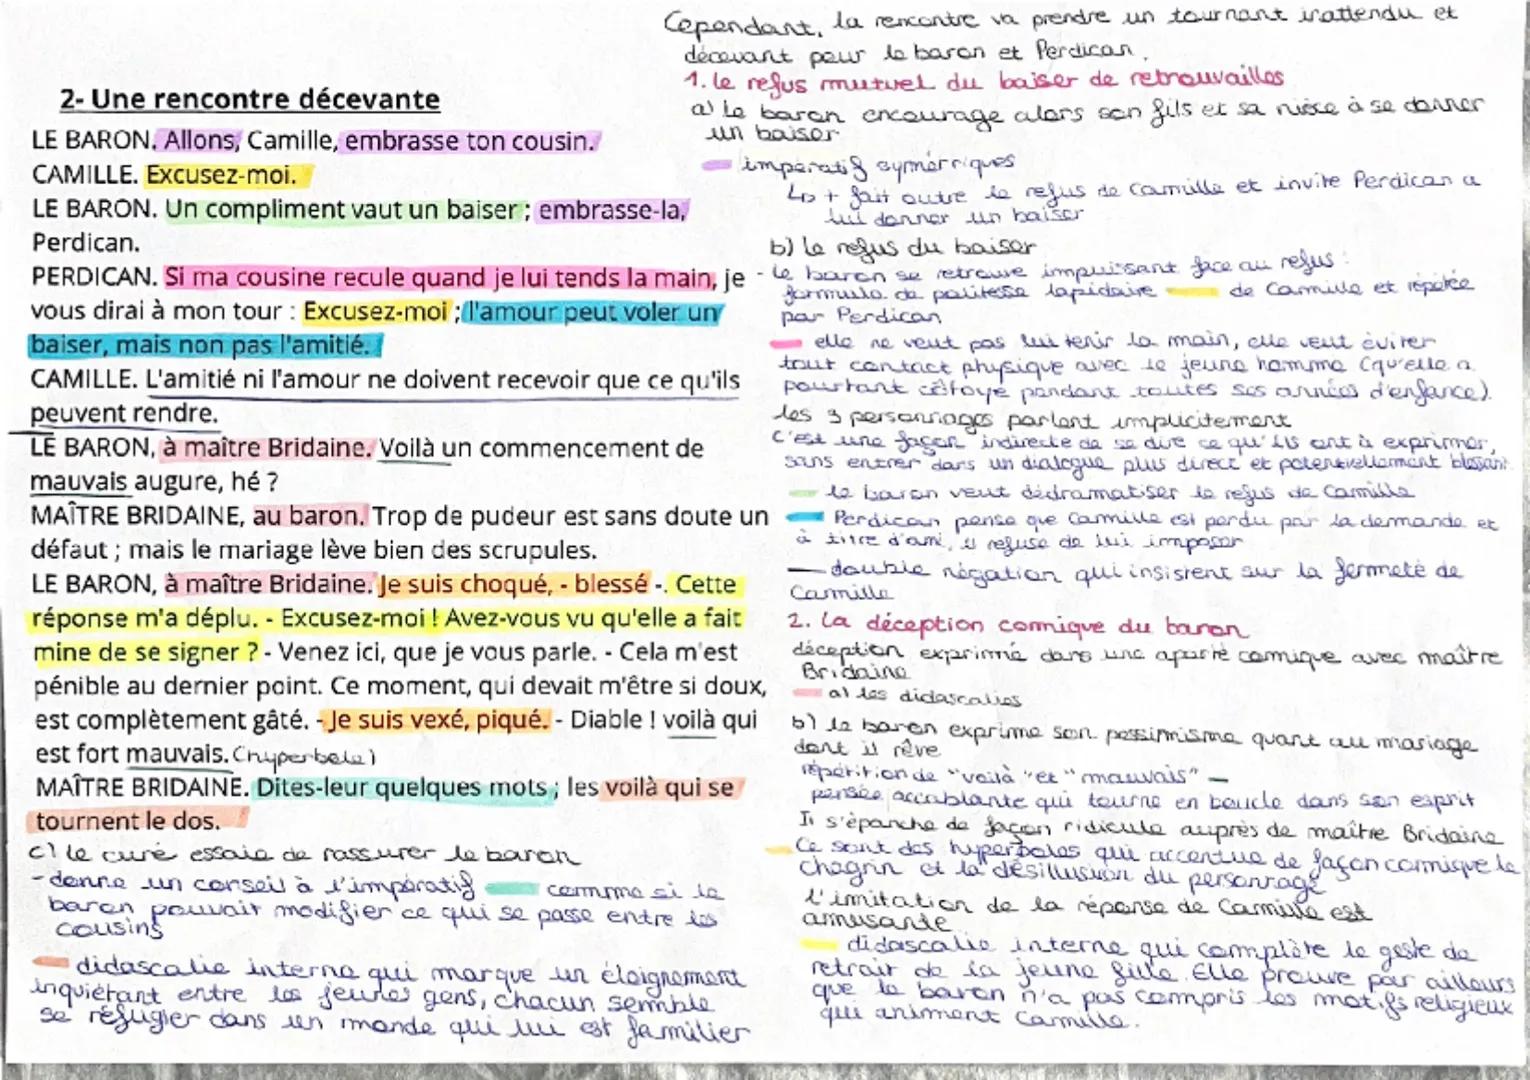 2- Une rencontre décevante
LE BARON. Allons, Camille, embrasse ton cousin.
CAMILLE. Excusez-moi.
LE BARON. Un compliment vaut un baiser ; embrasse-la,
Perdican.
PERDICAN. Si ma cousine recule quand je lui tends la main, je
vous dirai à mon tour : Excusez-moi ; l'amour peut voler un
baiser, mais non pas l'amitié.
CAMILLE. L'amitié ni l'amour ne doivent recevoir que ce qu'ils
peuvent rendre.
LE BARON, à maître Bridaine. Voilà un commencement de
mauvais augure, hé ?
MAÎTRE BRIDAINE, au baron. Trop de pudeur est sans doute un
défaut ; mais le mariage lève bien des scrupules.
LE BARON, à maître Bridaine. Je suis choqué, - blessé -. Cette
réponse m'a déplu. - Excusez-moi ! Avez-vous vu qu'elle a fait
mine de se signer ? - Venez ici, que je vous parle. - Cela m'est
pénible au dernier point. Ce moment, qui devait m'être si doux,
est complètement gâté. - Je suis vexé, piqué. - Diable ! voilà qui
est fort mauvais. (hyperbole)
MAÎTRE BRIDAINE. Dites-leur quelques mots ; les voilà qui se
tournent le dos.
c) le curé essaie de rassurer le baron
- donne un conseil à l'impératif comme si le
baron pouvait modifier ce qui se passe entre les
cousins
didascalie interne qui marque un éloignement
inquiétant entre les jeunes gens, chacun semble
se réfugier dans un monde qui lui est familier
Cependant, la rencontre va prendre un tournant inattendu et
décevant pour le baron et Perdican.
1. le refus mutuel du baiser de retrouvailles
a) Le baron encourage alors son fils et sa nièce à se donner
un baiser
impératif symétriques
↳ + fait outre le refus de Camille et invite Perdican à
lui donner un baiser
b) le refus du baiser
- le baron se retrouve impuissant face au refus :
formule de politesse lapidaire de Camille et répétée
par Perdican
elle ne veut pas lui tenir la main, elle veut éviter
tout contact physique avec le jeune homme (qu'elle a
pourtant côtoyé pendant toutes ses années d'enfance).
les 3 personnages parlent implicitement
C'est une façon indirecte de se dire ce qu'ils ont à exprimer,
sans entrer dans un dialogue plus direct et potentiellement blessant
le baron veut dédramatiser le refus de Camille
Perdican pense que Camille est perdu par la demande et
à titre d'ami, il refuse de lui imposer
double négation qui insistent sur la fermeté de
Camille
2. la déception comique du baron
déception exprimé dans une aparté comique avec maître
Bridaine
a) les didascalies
b) le baron exprime son pessimisme quant au mariage
dont il rêve
répétition de "voilà" et "mauvais"
pensée accablante qui tourne en boucle dans son esprit
Il s'épanche de façon ridicule auprès de maître Bridaine
Ce sont des hyperboles qui accentue de façon comique le
chagrin et la désillusion du personnage
l'imitation de la réponse de Camille est
amusante
didascalie interne qui complète le geste de
retrait de la jeune fille. Elle prouve par ailleurs
que le baron n'a pas compris les motifs religieux
qui animent Camille.